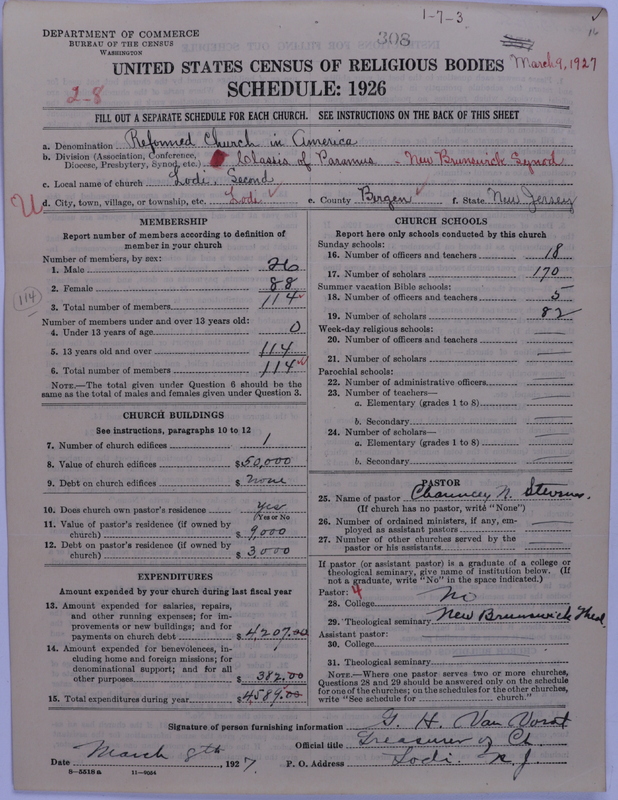 1-7-3
308
DEPARTMENT OF COMMERCE
BUREAU OF THE CENSUS
WASHINGTON
March 9, 1927
UNITED STATES CENSUS OF RELIGIOUS BODIES
SCHEDULE: 1926
2-8
FILL OUT A SEPARATE SCHEDULE FOR EACH CHURCH. SEE INSTRUCTIONS ON THE BACK OF THIS SHEET
a. Denomination Reformed Church in America
b. Division (Association, Conference, Diocese, Presbytery, Synod, etc.) Classis of Paramus - New Brunswick Synod
c. Local name of church Lodi, Second
d. City, town, village, or township, etc. Lodi e. County Bergen f. State New Jersey
MEMBERSHIP
Report number of members according to definition of
member in your church
Number of members, by sex:
1. Male 26
2. Female 88
114
3. Total number of members 114
Number of members under and over 13 years old:
4. Under 13 years of age 0
5. 13 years old and over 114
6. Total number of members 114
NOTE.—The total given under Question 6 should be the
same as the total of males and females given under Question 3.
CHURCH BUILDINGS
See instructions, paragraphs 10 to 12
7. Number of church edifices 1
8. Value of church edifices $50,000
9. Debt on church edifices $ none
10. Does church own pastor's residence yes
(Yes or No)
11. Value of pastor's residence (if owned by
church) $ 9,000
12. Debt on pastor's residence (if owned by
church) $ 3,000
EXPENDITURES
Amount expended by your church during last fiscal year
13. Amount expended for salaries, repairs,
and other running expenses; for im-
provements or new buildings; and for
payments on church debt $ 4207.00
14. Amount expended for benevolences, in-
cluding home and foreign missions; for
denominational support; and for all
other purposes $ 382.00
15. Total expenditures during year $ 4589.00
CHURCH SCHOOLS
Report here only schools conducted by this church
Sunday schools:
16. Number of officers and teachers 18
17. Number of scholars 170
Summer vacation Bible schools:
18. Number of officers and teachers 5
19. Number of scholars 82
Week-day religious schools:
20. Number of officers and teachers
21. Number of scholars
Parochial schools:
22. Number of administrative officers
23. Number of teachers—
a. Elementary (grades 1 to 8)
b. Secondary
24. Number of scholars—
a. Elementary (grades 1 to 8)
b. Secondary
PASTOR
25. Name of pastor Chauncey N. Stevens
(If church has no pastor, write "None")
26. Number of ordained ministers, if any, em-
ployed as assistant pastors
27. Number of other churches served by the
pastor or his assistants
If pastor (or assistant pastor) is a graduate of a college or
theological seminary, give name of institution below. (If
not a graduate, write "No" in the space indicated.)
Pastor: 4
28. College No
29. Theological seminary New Brunswick Theol.
Assistant pastor:
30. College
31. Theological seminary
NOTE.—Where one pastor serves two or more churches,
Questions 28 and 29 should be answered only on the schedule
for one of the churches; on the schedules for the other churches,
write "See schedule for church."
Signature of person furnishing information G. H. Van Vorst
Official title Treasurer of Ch.
Date March 8th, 1927 P. O. Address Lodi. N. J.
8-5518a 11-9064